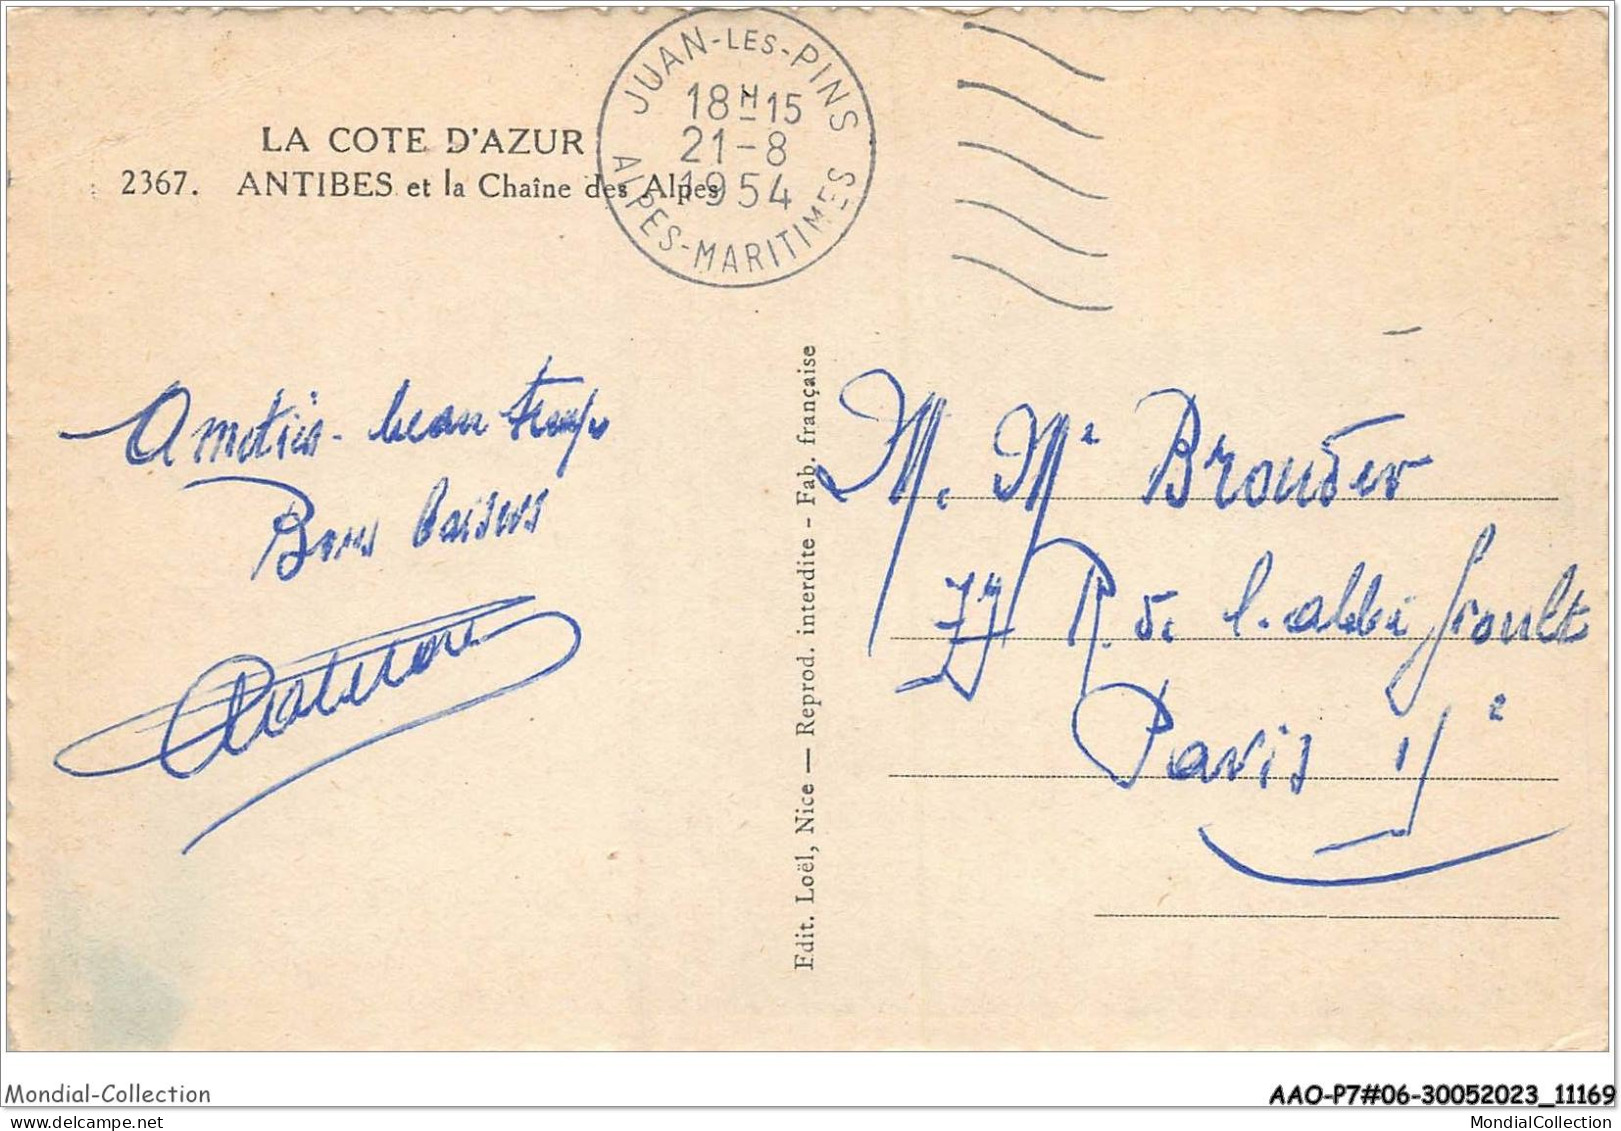 LA COTE D'AZUR
2367. ANTIBES et la Chaîne des Alpes
JUAN-LES-PINS
18H15
21-8
1954
ALPES-MARITIMES
beau temps
Bons baisers
Edit. Loël, Nice — Reprod. interdite - Fab. française
M. Me
77 R. de l'abbé Groult
Paris
Mondial-Collection
AAO-P7#06-30052023_11169
MondialCollection